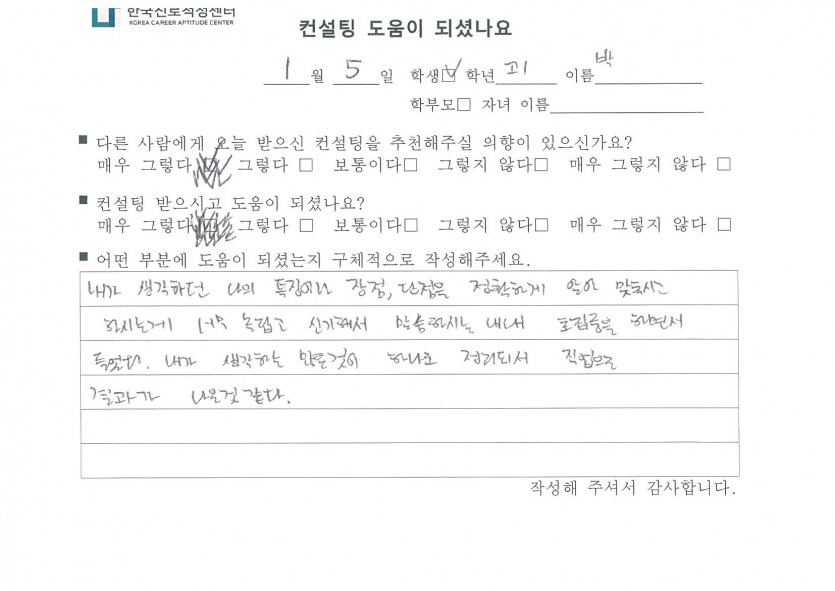 한국진로적성센터
KOREA CAREER APTITUDE CENTER
컨설팅 도움이 되셨나요
1월 5일 학생□ 학년 고1 이름 박
학부모□ 자녀 이름
■ 다른 사람에게 오늘 받으신 컨설팅을 추천해주실 의향이 있으신가요?
매우 그렇다 □ 그렇다 □ 보통이다□ 그렇지 않다□ 매우 그렇지 않다 □
■ 컨설팅 받으시고 도움이 되셨나요?
매우 그렇다 □ 그렇다 □ 보통이다□ 그렇지 않다□ 매우 그렇지 않다 □
■ 어떤 부분에 도움이 되셨는지 구체적으로 작성해주세요.
내가 생각하던 나의 특징이나 장점, 단점을 정확하게
하시는게 너무 놀랍고 신기해서 말씀하시는 내내 하면서
들었다. 내가 생각하는 모든것이 하나로 정리되서 직업으로
결과가 나온것 같다.
작성해 주셔서 감사합니다.